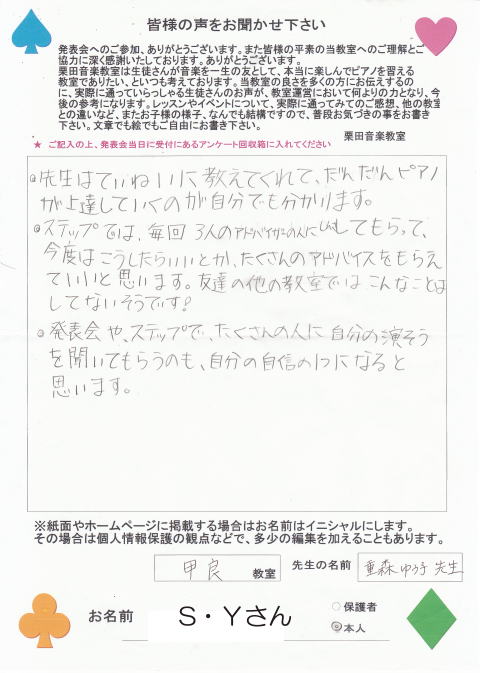 皆様の声をお聞かせ下さい
発表会へのご参加、ありがとうございます。また皆様の平素の当教室へのご理解とご
協力に深く感謝いたしております。ありがとうございます。
栗田音楽教室は生徒さんが音楽を一生の友として、本当に楽しんでピアノを習える
教室でありたい、といつも考えております。当教室の良さを多くの方にお伝えするの
に、実際に通っていらっしゃる生徒さんのお声が、教室運営において何よりの力となり、今
後の参考になります。レッスンやイベントについて、実際に通ってみてのご感想、他の教室
との違いなど、またお子様の様子、なんでも結構ですので、普段お気づきの事をお書き
下さい。文章でも絵でもご自由にお書き下さい。
栗田音楽教室
★ ご記入の上、発表会当日に受付にあるアンケート回収箱に入れてください
◎先生はていねいに教えてくれて、だんだんピアノ
が上達していくのが自分でも分かります。
◎ステップでは、毎回3人のアドバイザーの人に してもらって、
今度はこうしたらいいとか、たくさんのアドバイスをもらえ
ていいと思います。友達の他の教室ではこんなことは
してないそうです!
◎発表会や、ステップで、たくさんの人に自分の演そう
を聞いてもらうのも、自分の自信の1つになると
思います。
※紙面やホームページに掲載する場合はお名前はイニシャルにします。
その場合は個人情報保護の観点などで、多少の編集を加えることもあります。
甲良 教室 先生の名前 重森ゆう子 先生
お名前 S・Yさん ○保護者
◎本人